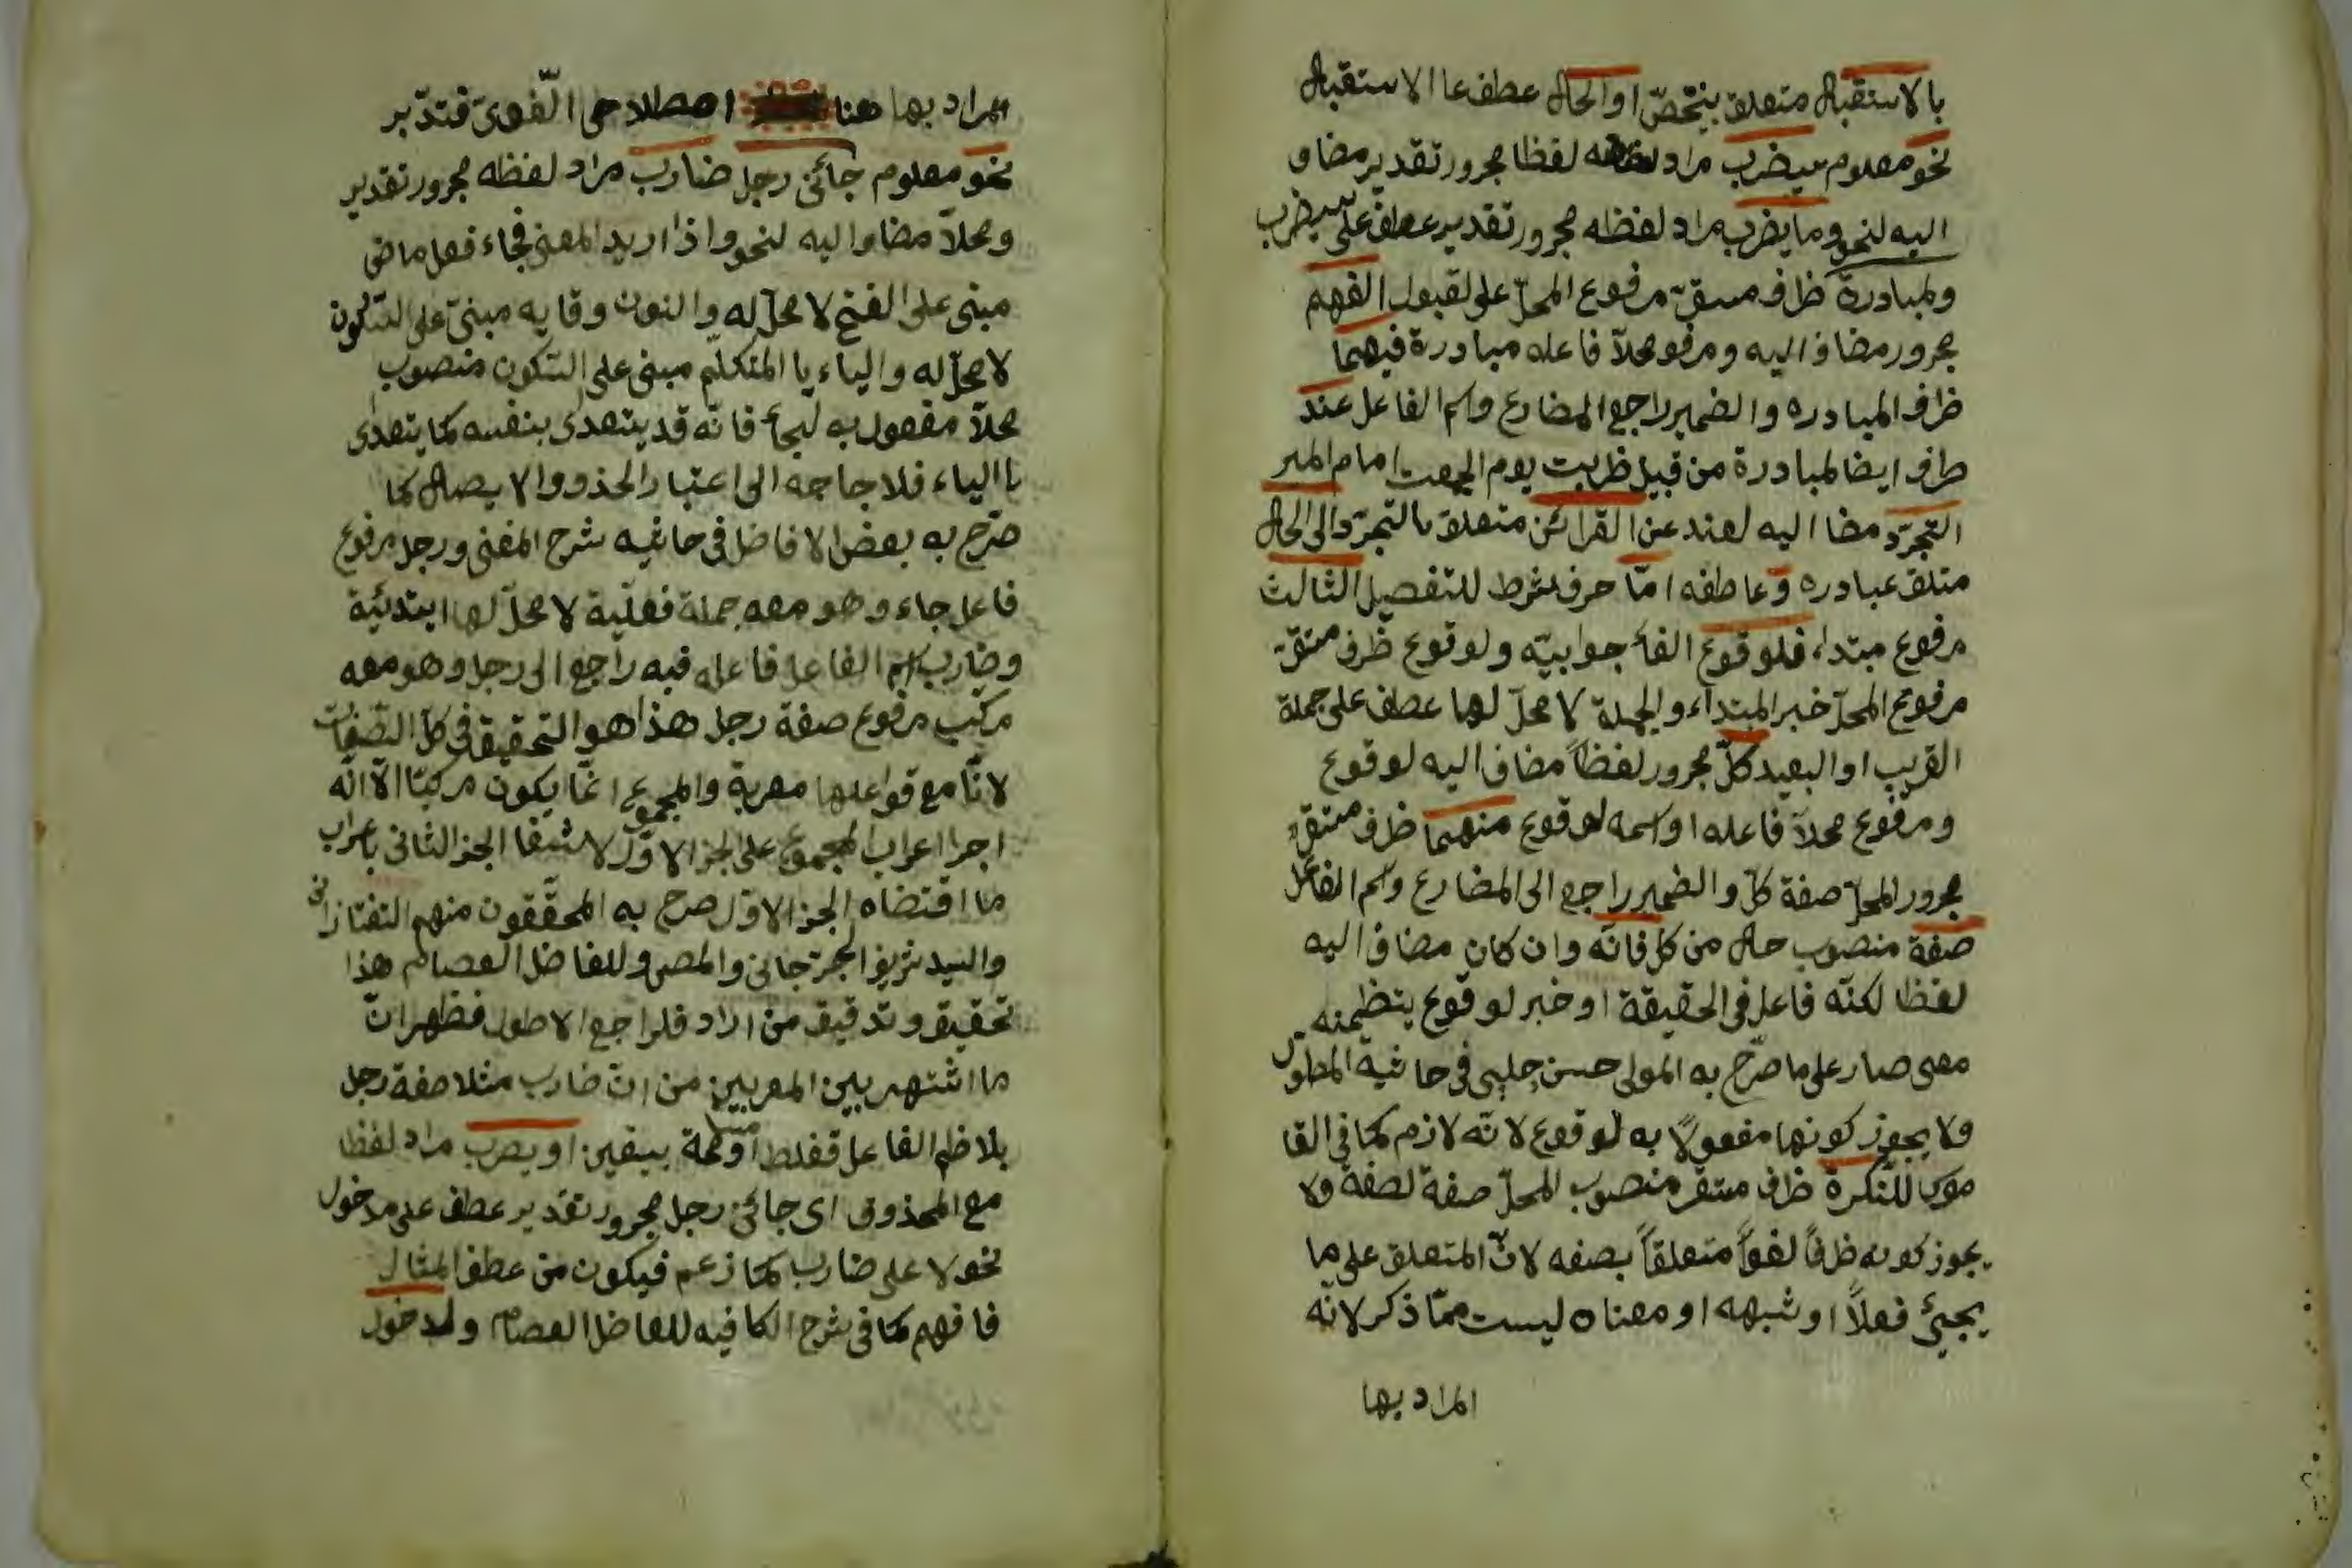 بالاستقبال متعلق بيختصّ او الحال عطف عا الاستقبال
نحو معلوم سيضرب مراد لفظه لفظا مجرور تقدير مضاف
اليه لنحو وما يضرب مراد لفظه مجرور تقدير عطف على سيضرب
ولمبادرة ظرف مستقرّ مرفوع المحلّ على لقبول الفهم
مجرور مضاف اليه ومرفو محلاّ فاعله مبادرة فيهما
ظرف المبادره والضمير راجع المضارع واسم الفاعل عند
ظرف ايضا لمبادرة من قبيل ضربت يوم الجمعت امام المير
التجرّد مضا اليه لعند عن القرائن متعلق بالتجرّد والى الحال
متلق عبادره وعاطفه امّا حرف شرط للتفصيل الثالث
مرفوع مبتداء فلوقوع الفاء جوابيّه ولوقوع ظرف مستقرّ
مرفوع المحلّ خبر المبتداء والجملة لا محلّ لها عطف على جملة
القريب او البعيد كلّ مجرور لفظاً مضاف اليه لوقوع
ومرفوع محلاّ فاعله او اسمه لوقوع منهما ظرف مستقرّ
مجرور المحلّ صفة كلّ والضمير راجع الى المضارع واسم الفاعل
صفة منصوب حال من كلّ فانّه وان كان مضاف اليه
لفظا لكنّه فاعل في الحقيقة او خبر لوقوع بتظمنه
معنى صار على ما صرّح به المولى حسن چلبى فى حاشية المطوّل
ولا يجوز كونها مفعولاً به لوقوع لانّه لازم كما فى القا
موس للنّكرة ظرف مستقر منصوب المحلّ صفة لصفة ولا
يجوز كونه ظرفاً لغواً متعلقاً بصفه لانّ المتعلق على ما
يجئ فعلاً او شبهه او معناه ليست ممّا ذكر لانّه
المراد بها
المراد بها هنا اصطلاحى الّغوىّ فتدّبر
نحو معلوم جائنى رجل ضارب مراد لفظه مجرور تقدير
ومحلاّ مضاف اليه لنحو واذا اريد المعنى فجاء فعل ماضى
مبنى على الفتح لا محلّ له والنون وقايه مبنىّ على السّكون
لا محلّ له والياء يا المتكلّم مبنى على السّكون منصوب
محلاّ مفعول به لجاء فانّه قد يتعدى بنفسه كما يتعدى
باالياء فلا حاجه الى اعتبار الحذف والايصال كما
صرّح به بعض الافاضل فى حاشيه شرح المغنى ورجل مرفوع
فاعل جاء وهو معه جملة فعليّة لا محلّ لها ابتدئيّة
وضارب اسم الفاعل فاعله فيه راجع الى رجل وهو معه
مركب مرفوع صفة رجل هذا هو التحقيق فى كلّ الصّفات
لانّا مع فواعلها معربة والمجموع انّما يكون مركبّا الاّ انّه
اجرا اعراب المجموع على الجزالاوّل لاشتغا الجزالثانى باعراب
ما اقتضاه الجزالاوّل صرح به المحقّقون منهم التفتازانى
والسيد شريف الجرجانى والمصى وللفاضل العصام هذا
تحقيق وتدقيق من اراد فلراجع الاطول فظهر انّ
ما اشتهر بين المعربين من انّ ضارب مثلا صفة رجل
بلا ظم الفاعل قفلط بيقين او يضرب مراد لفظا
مع المحذوف اى جائنى رجل مجرور تقدير عطف على مدخول
نحو لا على ضارب كما زعم فيكون من عطف المثال
فافهم كما فى شرح الكافيه للفاضل العصام ولدخول